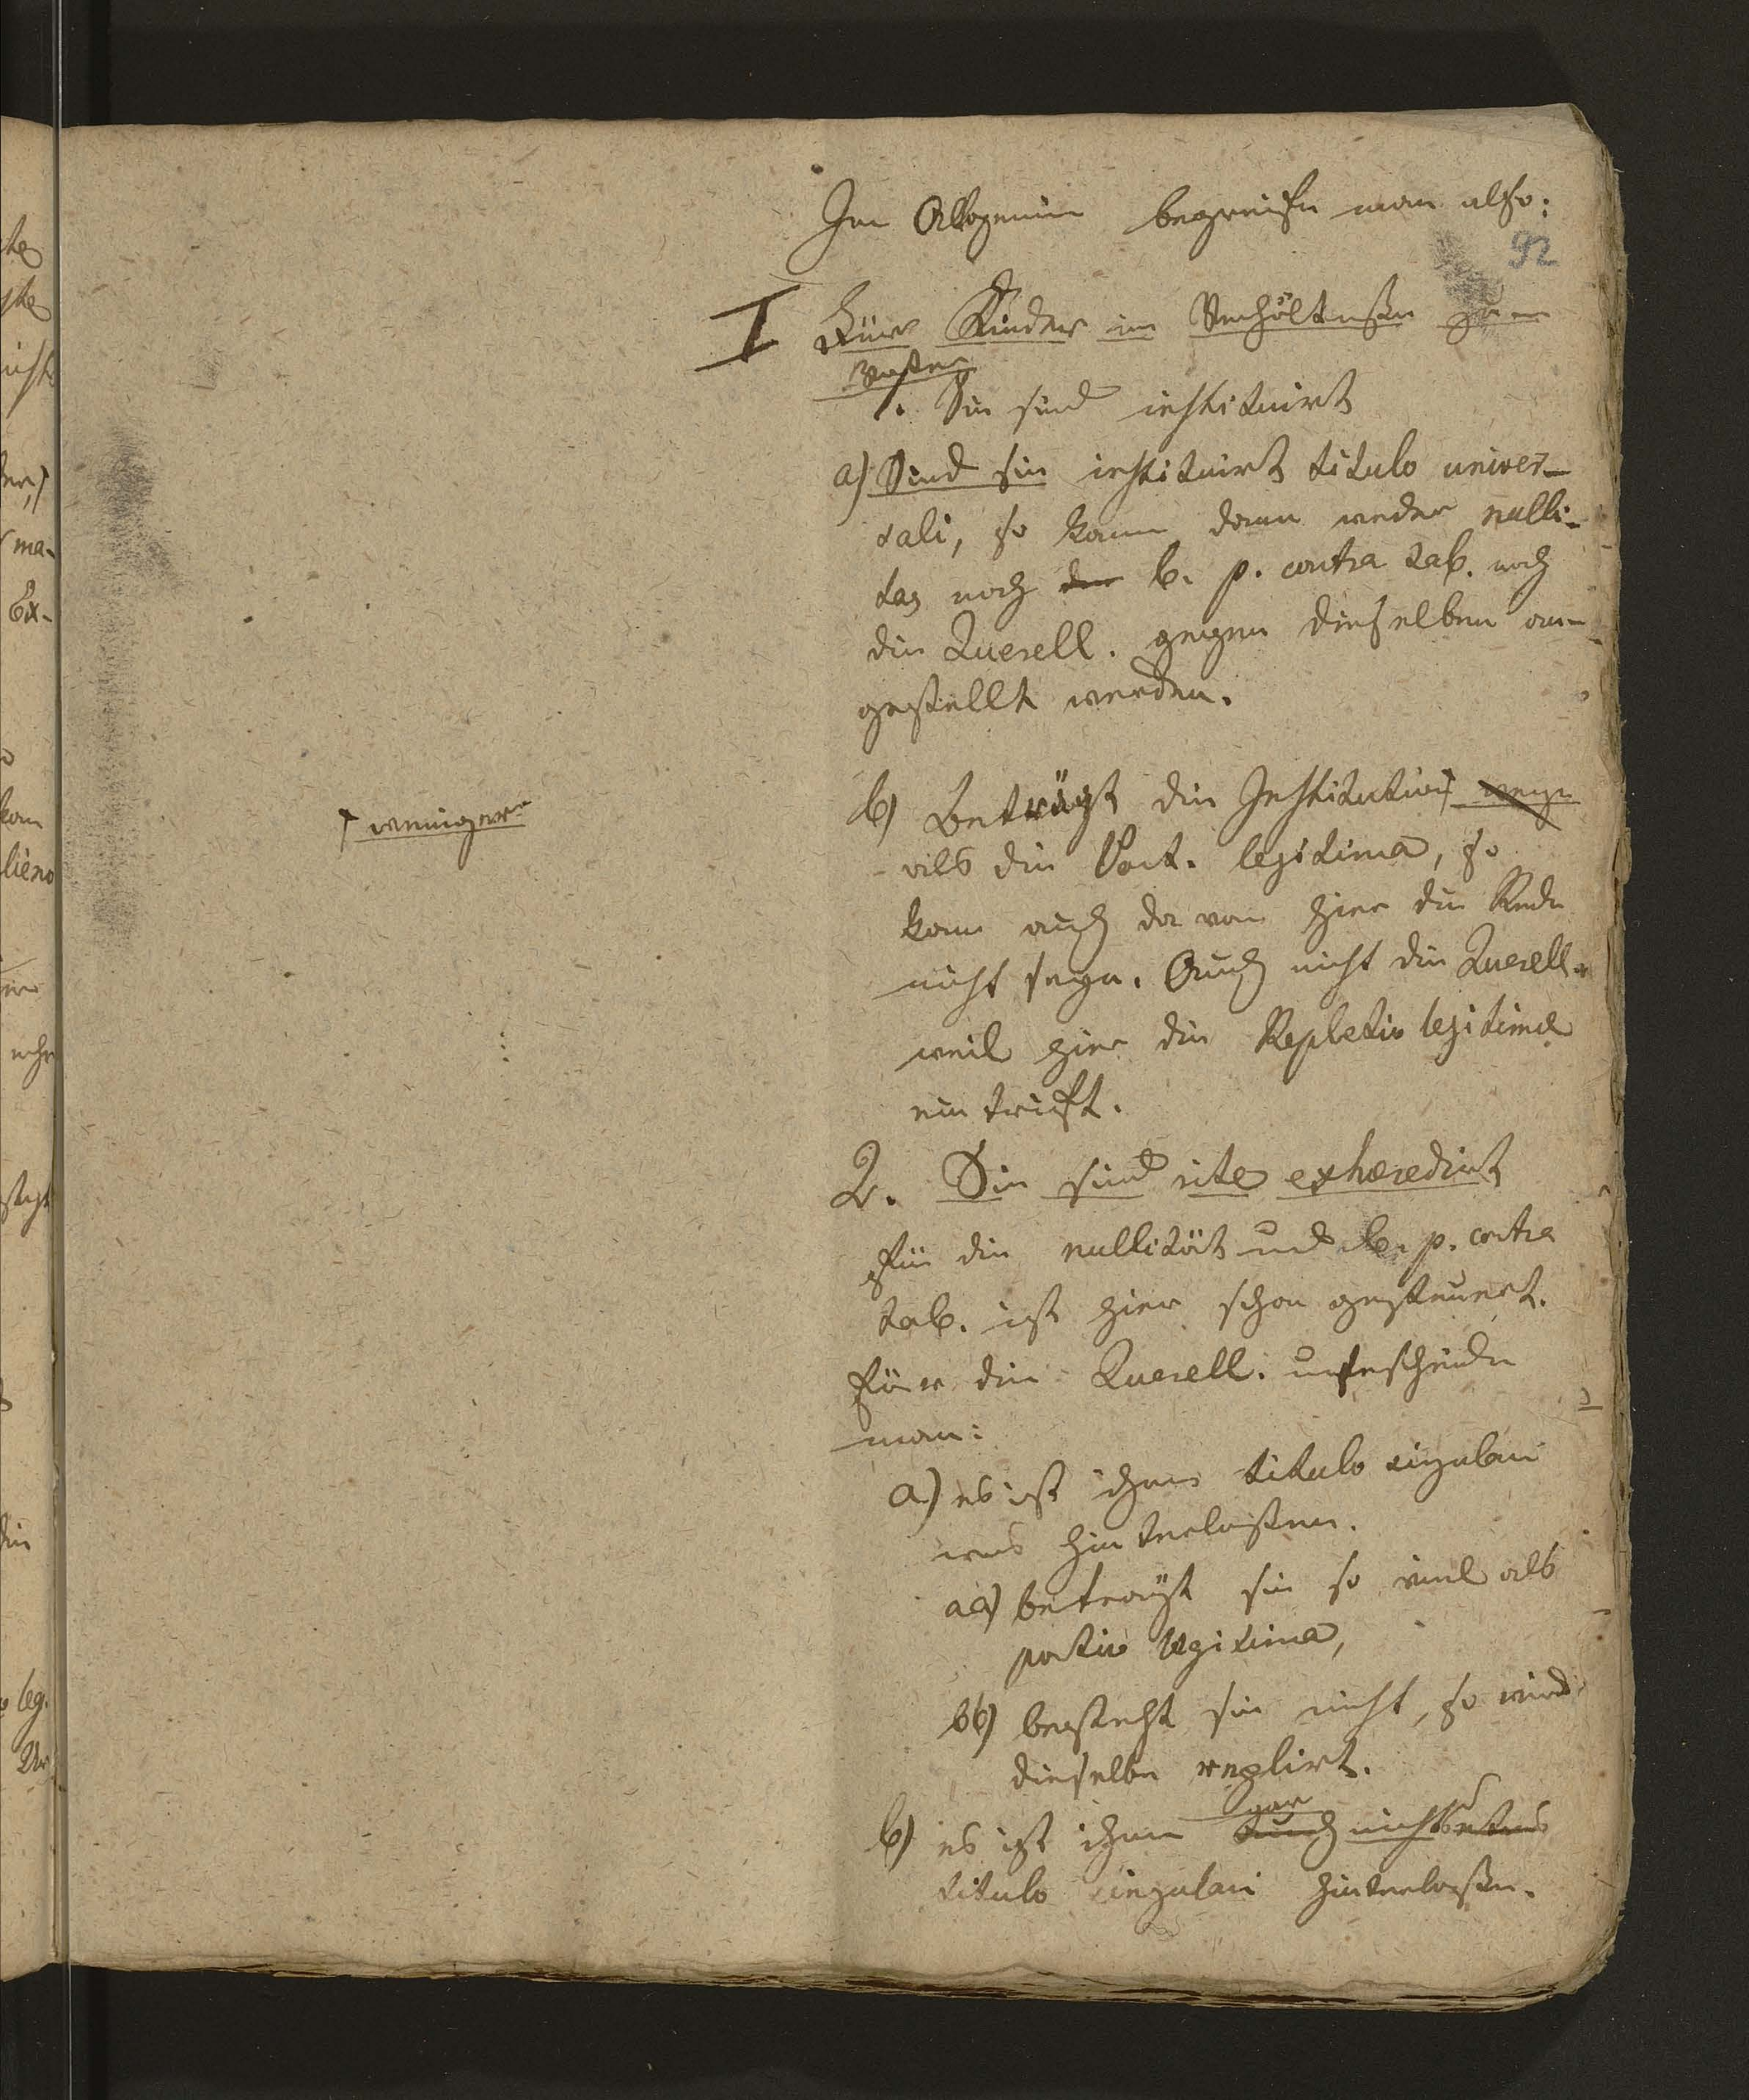 Im Allgemein begreifen man also:
92
I Für Kinder im Verhältnißen zum
Vater
1. Sie sind instituirt
a) Sind sie instituirt titulo univer-
sali, so kann dann weder nulli-
tas noch der b. p. contra tab. noch
die Querell. gegen dieselben an-
gestellt werden.
b) Beträgt die Institution wenige
† weniger
als die Port. legitima, so
kann auch da von hier die Rede
nicht seyn. Auch nicht die Querell.
weil hier die Repletio legitimæ
eintrift.
2. Sie sind rite exhæredirt
Für die nullität und b. p. contra
tab. ist hier schon gesteuert.
Für die Querell. unterscheide
man:
a) es ist ihnen titulo singulari
was hinterlaßen.
aa) beträgt sie so viel als
portio legitima,
bb) besteht sie nicht, so wird
dieselbe replirt.
b) es ist ihnen auch gar nichts etwas
titulo singulari hinterlaßen.